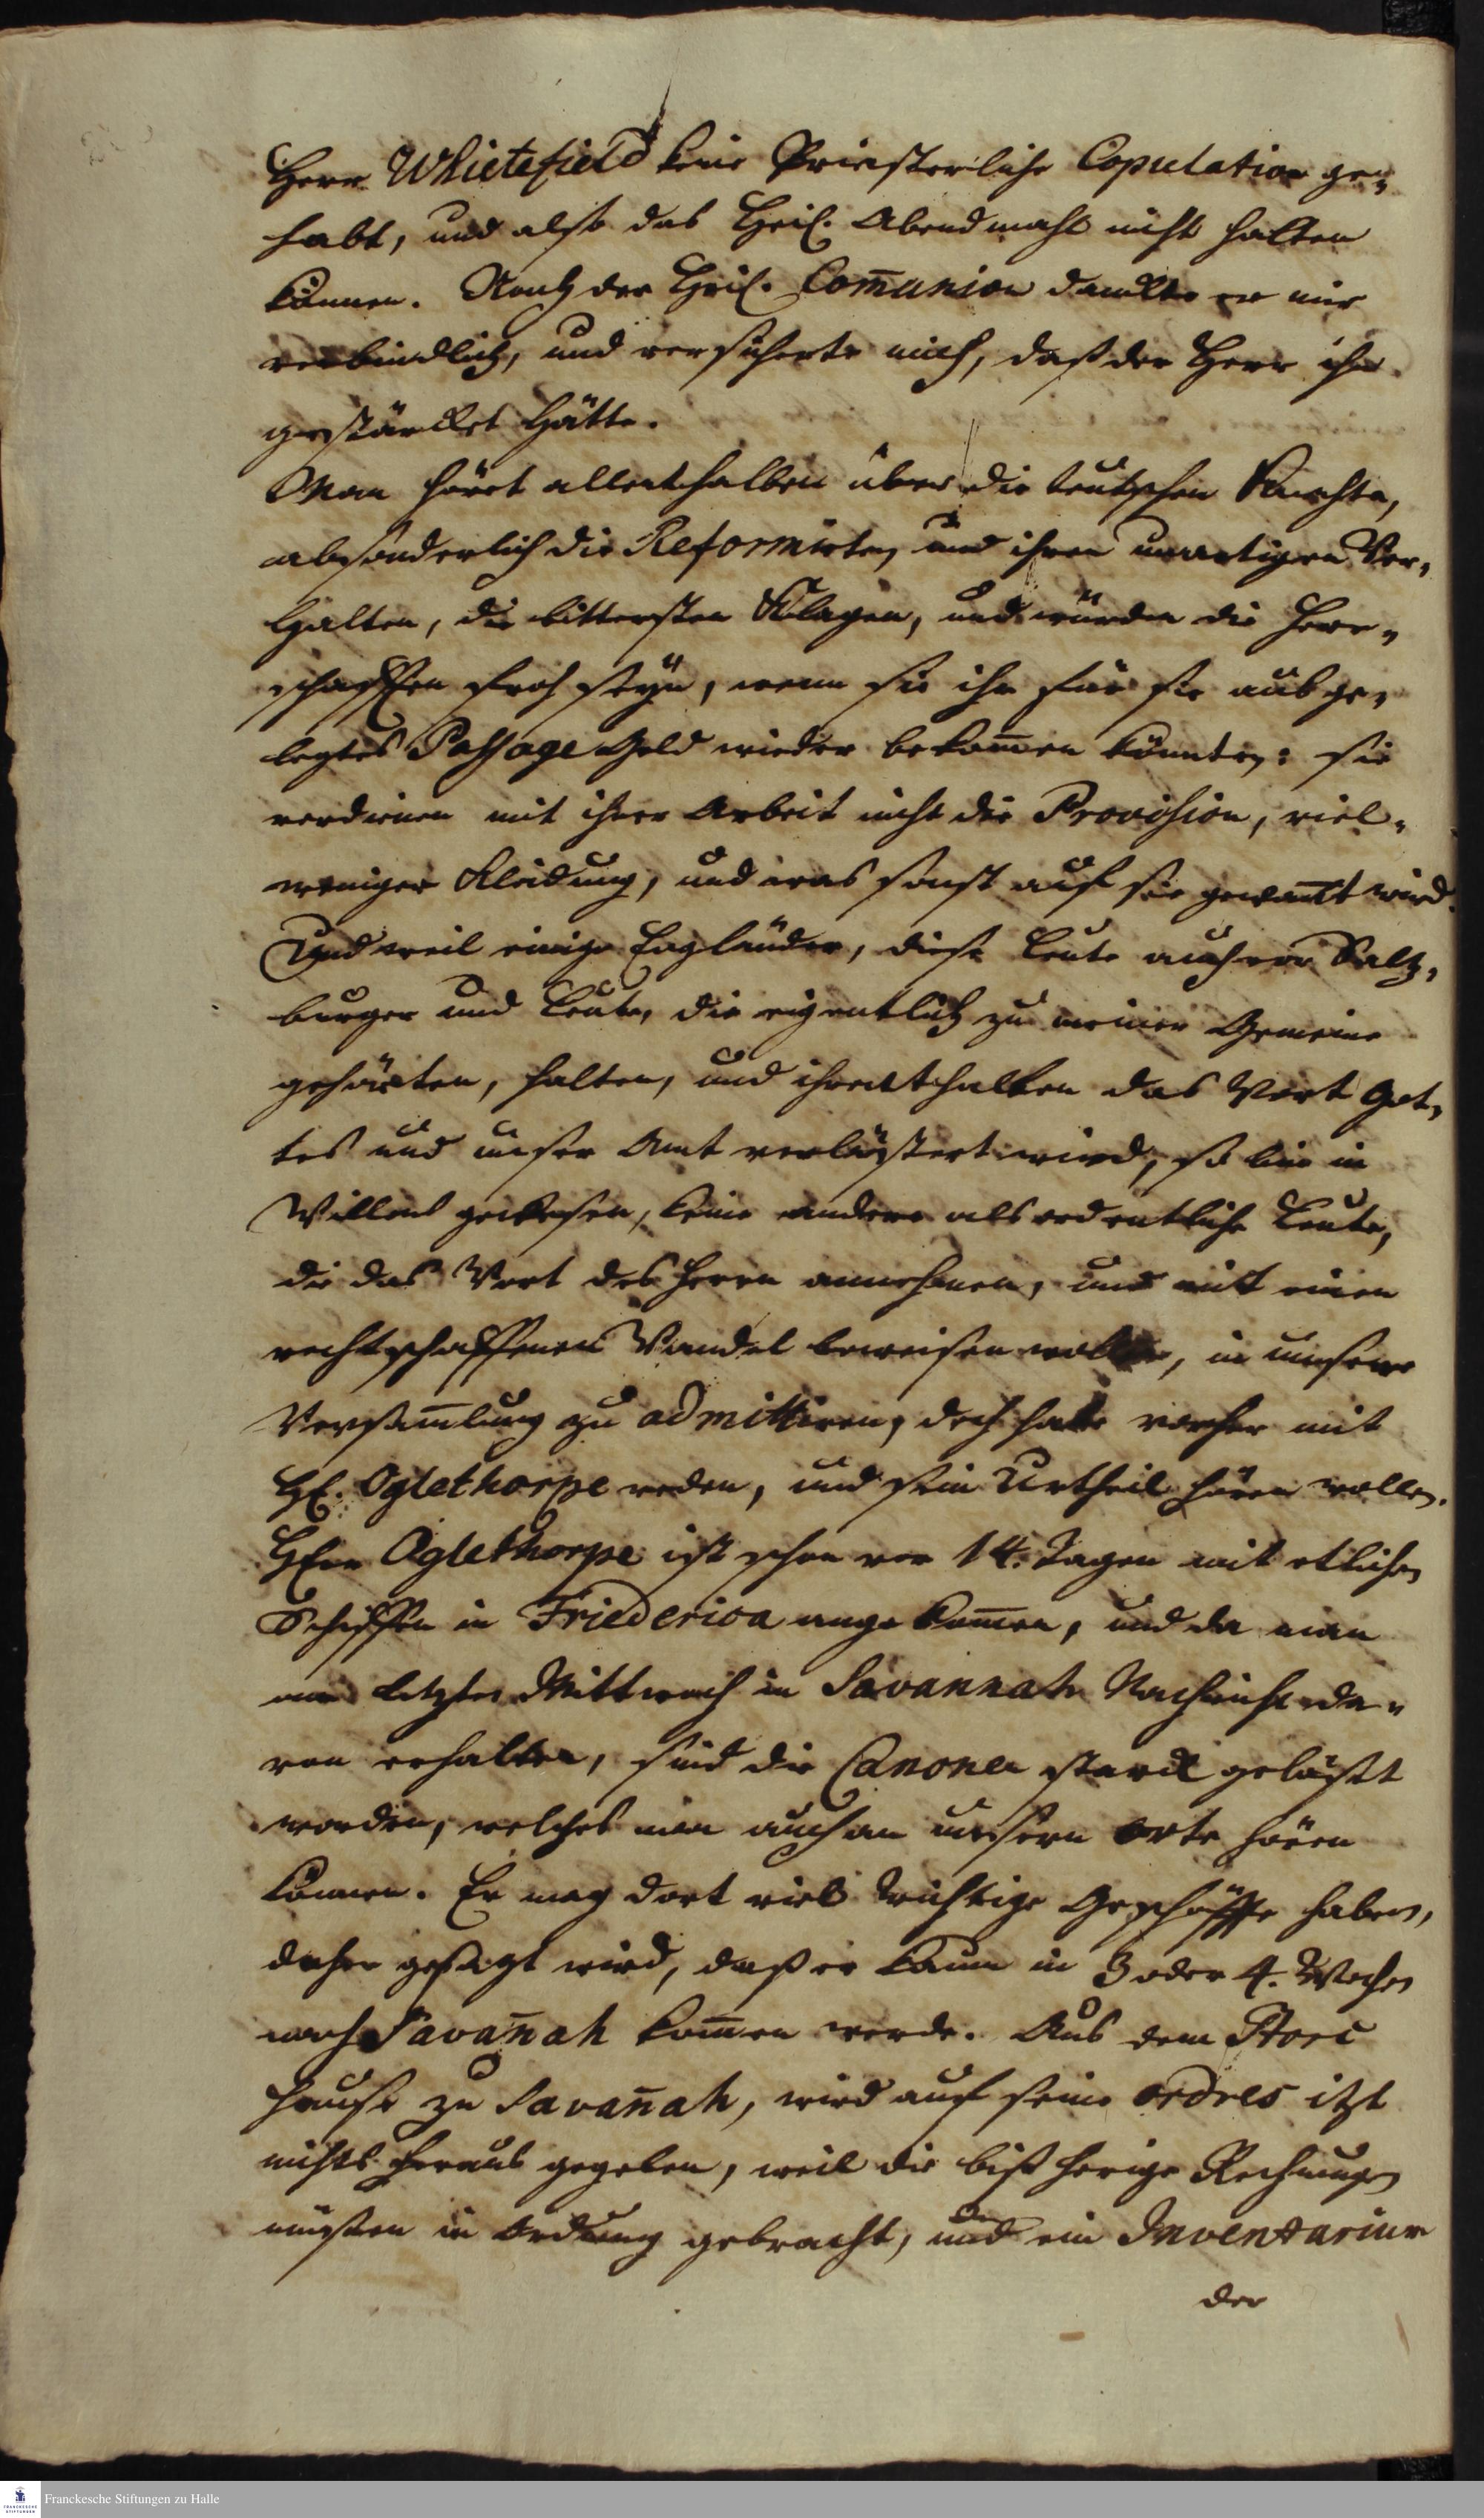 Herr Whietefield keine Priesterliche Copulation ge-
habt, und also das Heil. Abendmahl nicht halten
können. Nach der Heil. Com̄union danckte er mir
verbindlich, und versicherte mich, daß der Herr ihn
gestärcket hätte.
Man höret allenthalben über die teutschen Knechte,
absonderlich die Reformirten, und ihren unartigen Ver-
halten, die bittersten Klagen, und würden die Herr-
schafften froh seyn, wenn sie ihr für sie ausge-
legtes Passage Geld wieder bekom̄en könnten: sie
verdienen mit ihrer Arbeit nicht die Provision, viel-
weniger Kleidung, und was sonst auf sie gewandt wird.
Und weil einige Engländer, diese Leute auch vor Saltz-
burger und Leute, die eigentlich zu meiner Gemeine
gehörten, halten, und ihrenthalben das Wort Got-
tes und unser Amt verlästert wird, so bin in
Willens gewesen, keine andere als ordentliche Leute,
die das Wort des Herrn annehmen, und mit einen
rechtschaffenen Wandel beweisen wollen, in unsere
Versam̄lung zu admittiren, doch habe vorher mit
H. Oglethorpe reden, und sein Urtheil hören wollen.
Herr Oglethorpe ist schon vor 14. Tagen mit etlichen
Schiffen in Friederica angekom̄en, und da man
am letzten Mittwoch in Savannah Nachricht da-
von erhalten, sind die Canonen starck gelößt
worden, welches man auch an unsern Orte hören
können. Er mag dort viele wichtige Geschäffte haben,
daher gesagt wird, daß er kaum in 3 oder 4. Wochen
nach Savan̄ah kom̄en werde. Aus dem Store
Hause zu Savan̄ah, wird auf seine ordres itzt
nichts heraus gegeben, weil die bißherige Rechnungen
müßen in Ordnung gebracht, und ein Inventarium
der
Franckesche Stiftungen zu Halle